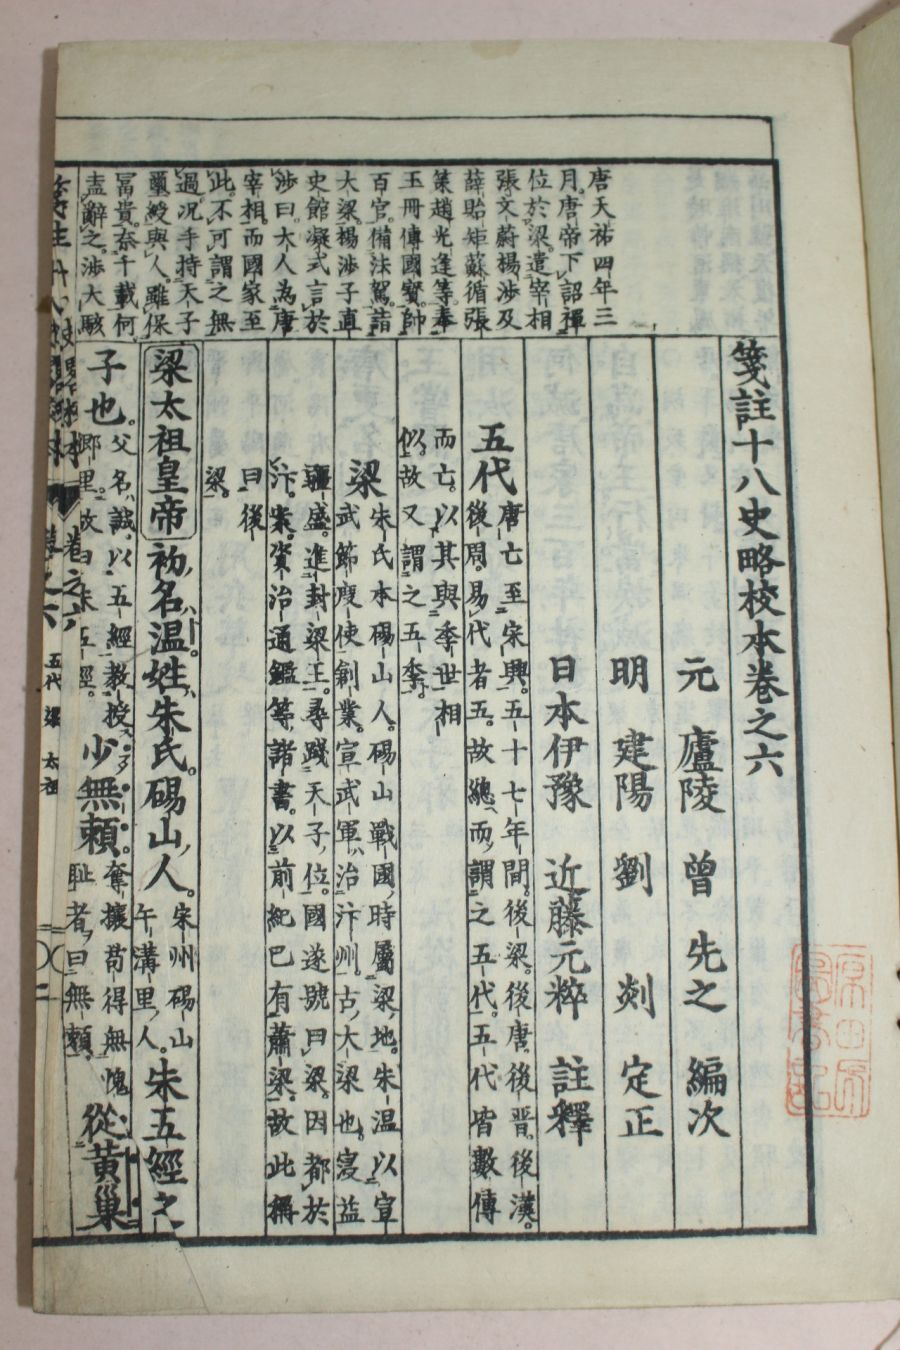 唐天祐四年三
月。唐帝下詔禪
位於梁。遣宰相
張文蔚楊渉及
薛貽矩蘇循張
策趙光逢等。奉
玉冊傳國寶。帥
百官。備法駕。詣
大梁。楊渉子直
史館凝式言於
渉曰。大人為唐
宰相而國家至
此。不可謂之無
過。况手持天子
璽綬與人。雖保
冨貴。奈千載何
盍辭之。渉大駭
箋註十八史略校本卷之六
元 廬陵 曾 先之 編次
明 建陽 劉 剡 定正
日本伊豫 近藤元粹 註釋
五代
唐亡至宋興。五十七年間。後梁。後唐。後晋。後漢。
後周。易代者五。故總而謂之五代。五代皆數傳
而亡。以其與季世相
似。故又謂之五季。
梁
朱氏本碭山人。碭山戰國時屬梁地。朱温以宣
武節度使創業。宣武軍治汴州。古大梁也。寖益
疆盛。進封梁王。尋踐天子位。國遂號曰梁。因都於
汴。案。資治通鑑等諸書。以前紀巳有蕭梁。故此稱
曰後
梁。
梁太祖皇帝初名温。姓朱氏。碭山人。
宋州碭山
午溝里人。
朱五經之
子也。
父名誠。以五經教授
郷里。故曰朱五經。
少無賴。
奪攘苟得無愧
耻者。曰無賴。
從黄巢
卷之六
五代 梁 太祖